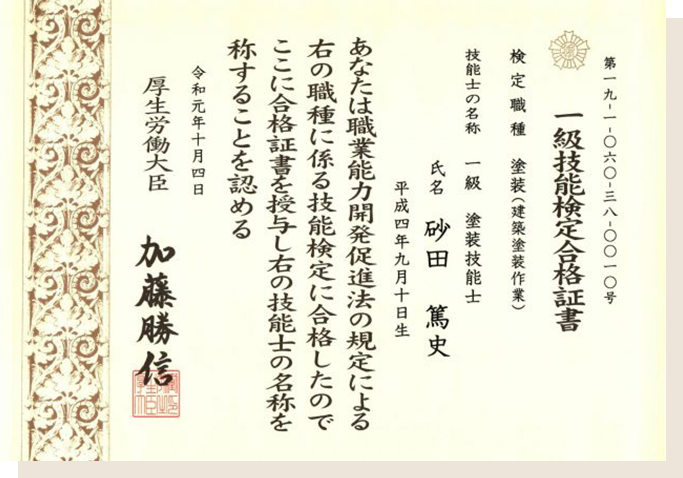 第一九-一-〇六〇-三八-〇〇一〇号
一級技能検定合格証書
検定職種 塗装(建築塗装作業)
技能士の名称 一級 塗装技能士
氏名 砂田 篤史
平成四年九月十日生
あなたは職業能力開発促進法の規定による
右の職種に係る技能検定に合格したので
ここに合格証書を授与し右の技能士の名称を
称することを認める
令和元年十月四日
厚生労働大臣 加藤勝信